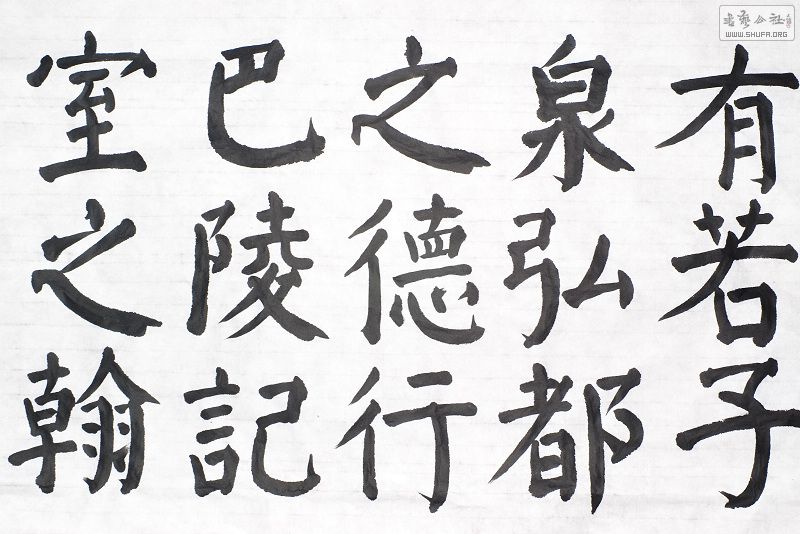 有若子
泉弘都
之德行
巴陵記
室之翰
書藝公社
WWW.SHUFA.ORG